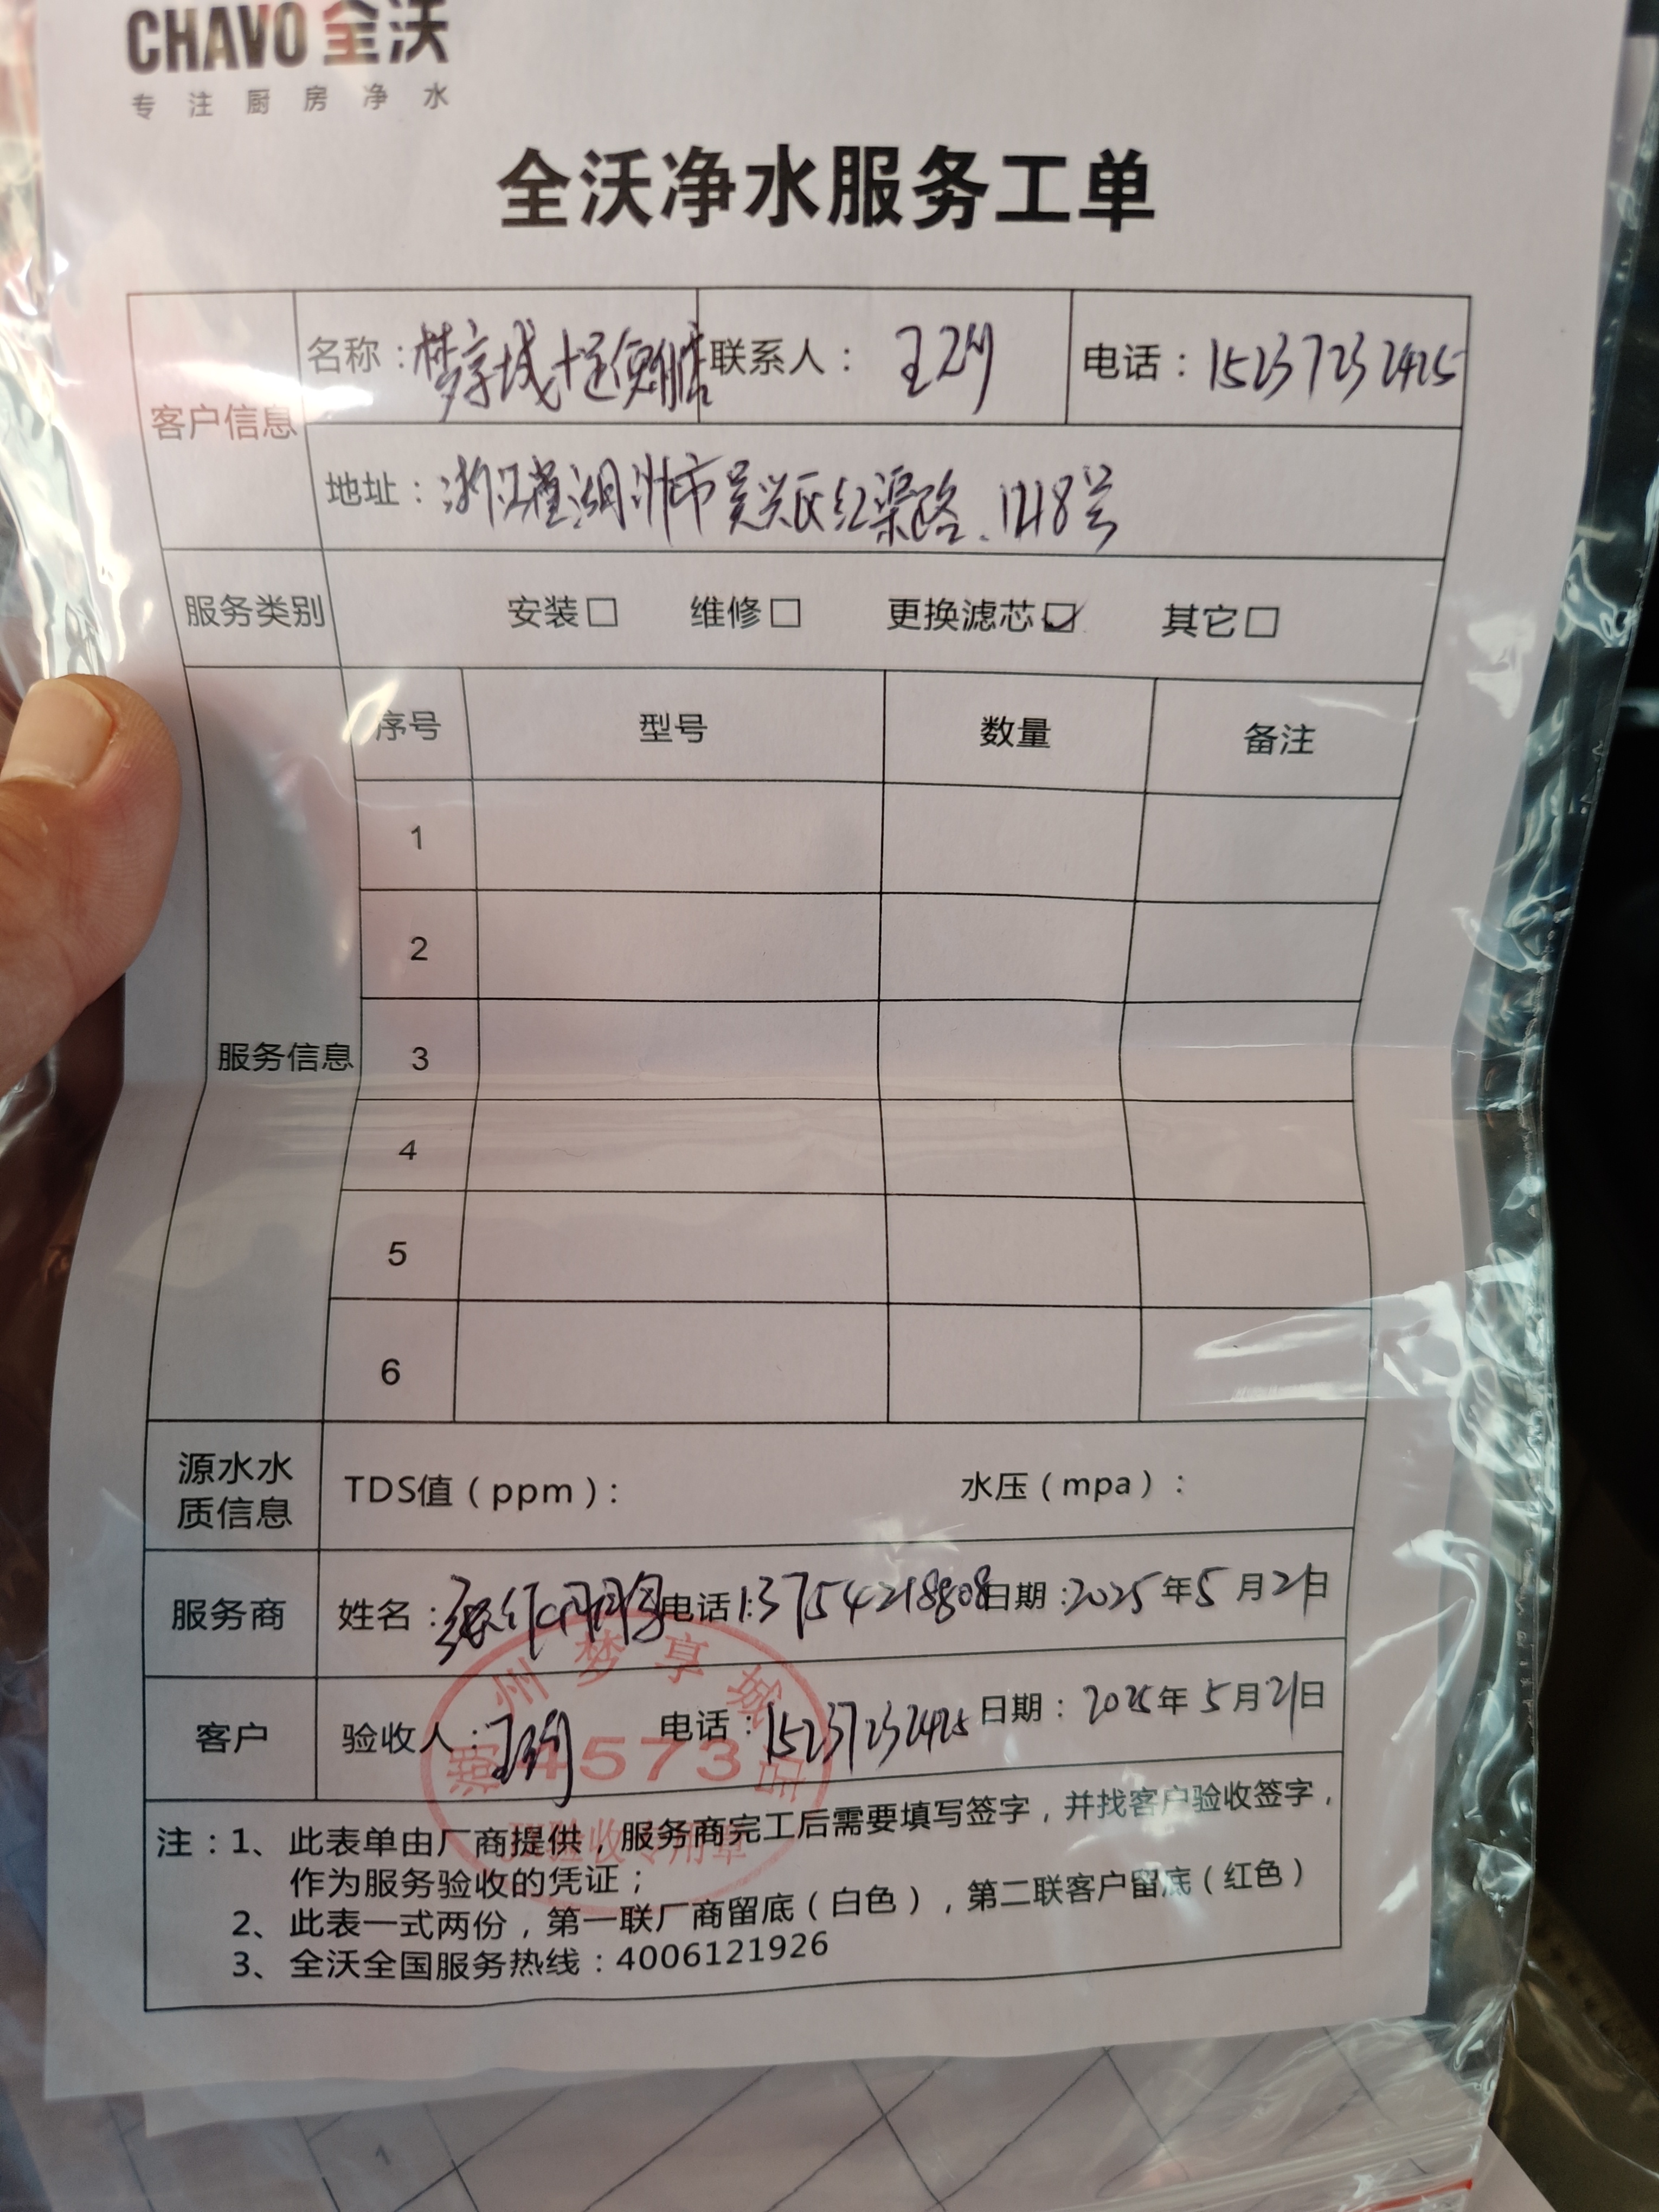 CHAVO 全沃
专注厨房净水
全沃净水服务工单
客户信息
名称：梦享城十足便利店 联系人：王 电话：15237232425
地址：浙江省湖州市吴兴区红渠路1218号
服务类别 安装□ 维修□ 更换滤芯☑ 其它□
服务信息
序号 型号 数量 备注
1
2
3
4
5
6
源水水质信息 TDS值（ppm）： 水压（mpa）：
服务商 姓名：张 电话：13754218808 日期：2025年5月21日
客户 验收人：王 电话：15237232425 日期：2025年5月21日
湖州梦享城店
4573
验收专用章
注：1、此表单由厂商提供，服务商完工后需要填写签字，并找客户验收签字，
作为服务验收的凭证；
2、此表一式两份，第一联厂商留底（白色），第二联客户留底（红色）
3、全沃全国服务热线：4006121926
1